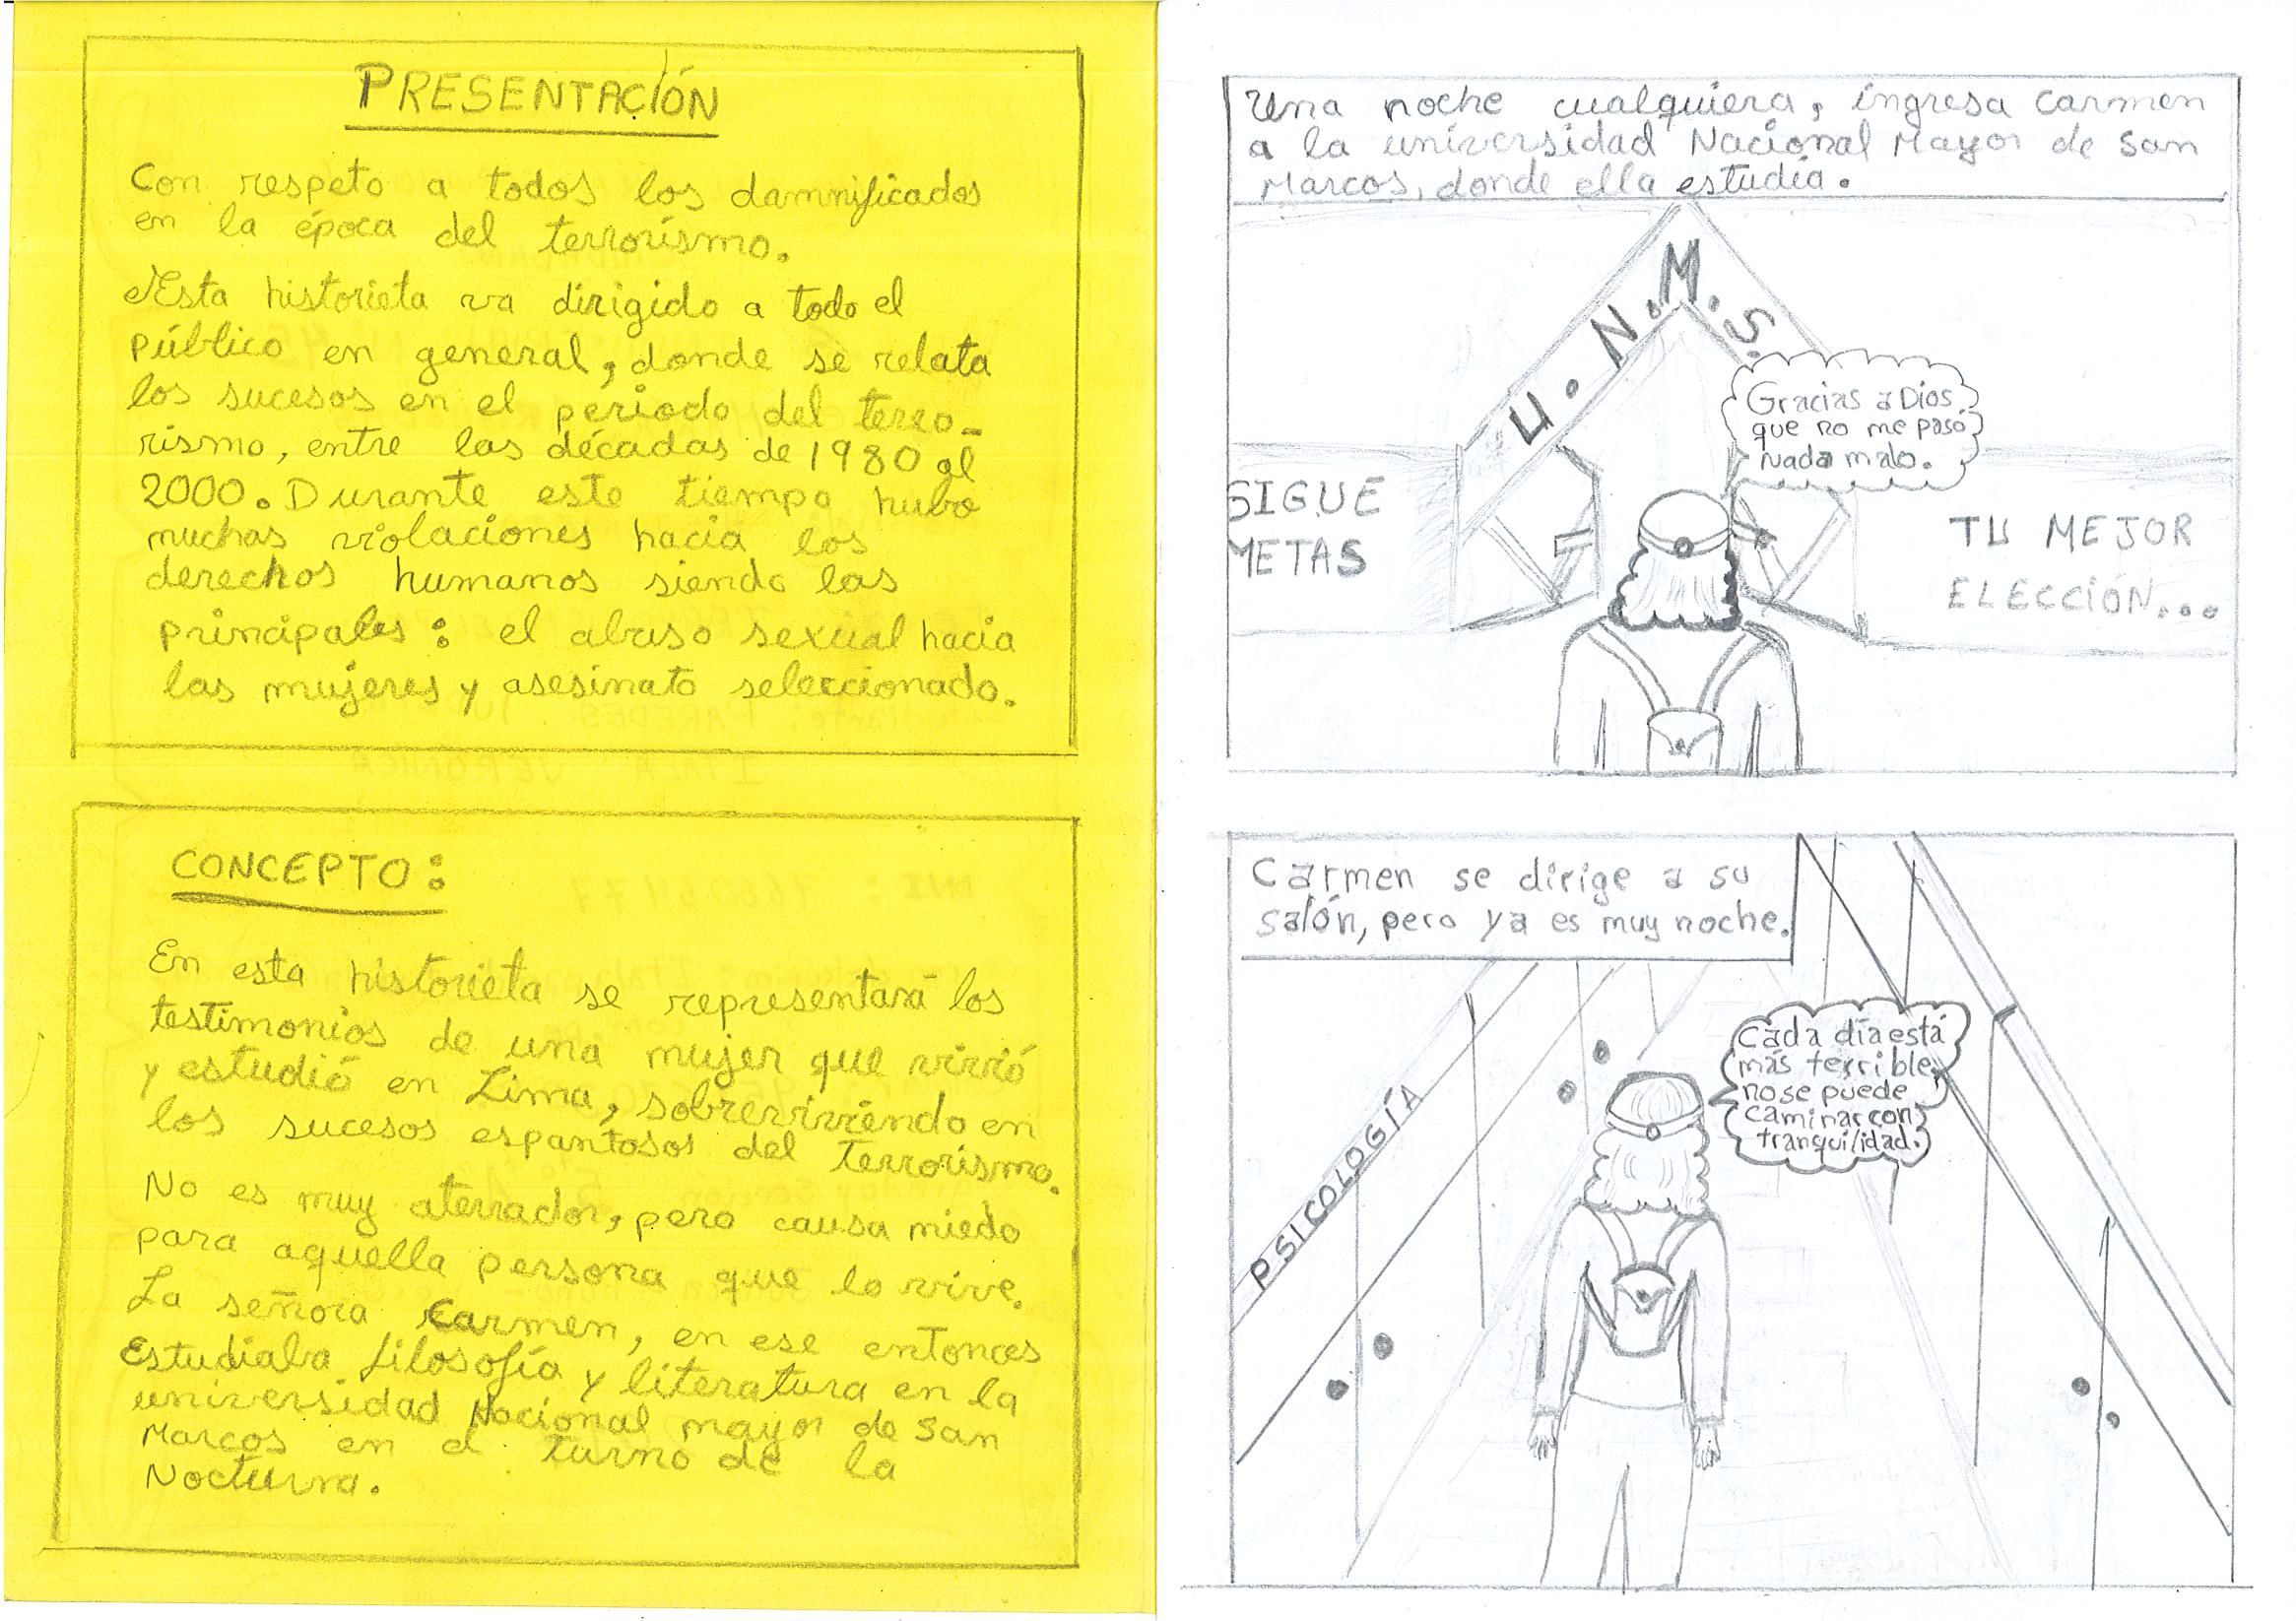 PRESENTACIÓN
Con respeto a todos los damnificados
en la época del terrorismo.
Esta historieta va dirigido a todo el
público en general, donde se relata
los sucesos en el periodo del terro-
rismo, entre las décadas de 1980 al
2000. Durante este tiempo hubo
muchas violaciones hacia los
derechos humanos siendo las
principales: el abuso sexual hacia
las mujeres y asesinato seleccionado.
CONCEPTO:
En esta historieta se representará los
testimonios de una mujer que vivió
y estudió en Lima, sobreviviendo en
los sucesos espantosos del terrorismo.
No es muy aterrador, pero causa miedo
para aquella persona que lo vive.
La señora Carmen, en ese entonces
Estudiaba filosofía y literatura en la
universidad Nacional mayor de San
Marcos en el turno de la
Nocturna.
Una noche cualquiera, ingresa Carmen
a la universidad Nacional Mayor de San
Marcos, donde ella estudia.
U.N.M.S.
Gracias a Dios
que no me pasó
nada malo.
SIGUE
METAS
TU MEJOR
ELECCIÓN...
Carmen se dirige a su
salón, pero ya es muy noche.
Cada día está
más terrible,
no se puede
caminar con
tranquilidad.
PSICOLOGÍA